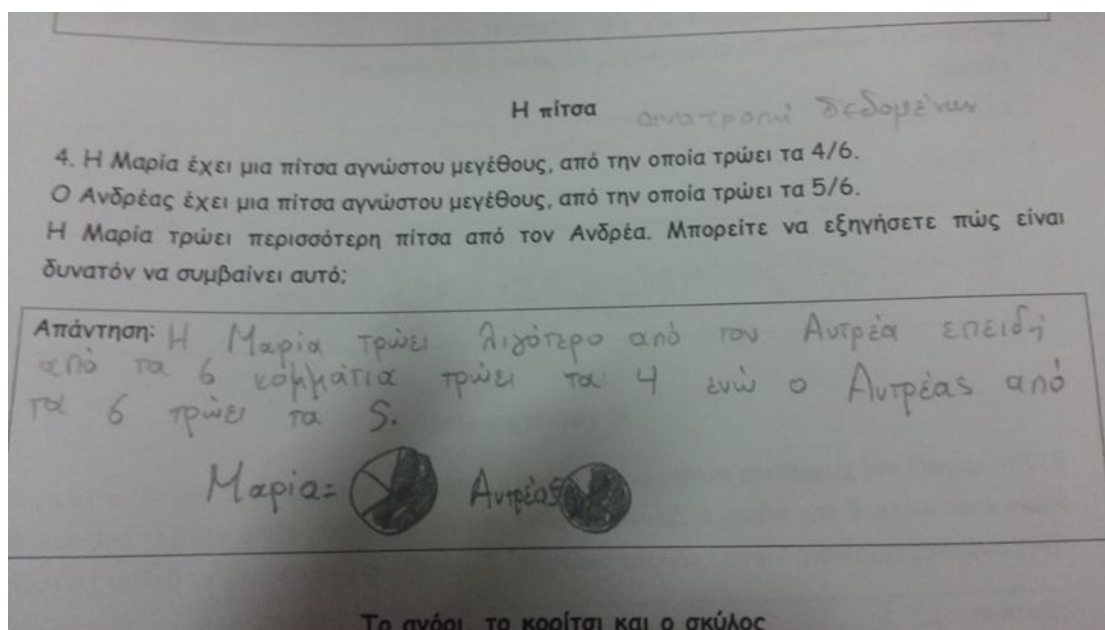 Η πίτσα ανατροπή δεδομένων
4. Η Μαρία έχει μια πίτσα αγνώστου μεγέθους, από την οποία τρώει τα 4/6.
Ο Ανδρέας έχει μια πίτσα αγνώστου μεγέθους, από την οποία τρώει τα 5/6.
Η Μαρία τρώει περισσότερη πίτσα από τον Ανδρέα. Μπορείτε να εξηγήσετε πώς είναι
δυνατόν να συμβαίνει αυτό;
Απάντηση: Η Μαρία τρώει λιγότερο από τον Αντρέα επειδή
από τα 6 κομμάτια τρώει τα 4 ενώ ο Αντρέας από
τα 6 τρώει τα 5.
Μαρία= Αντρέας
Το αγόρι, το κορίτσι και ο σκύλος